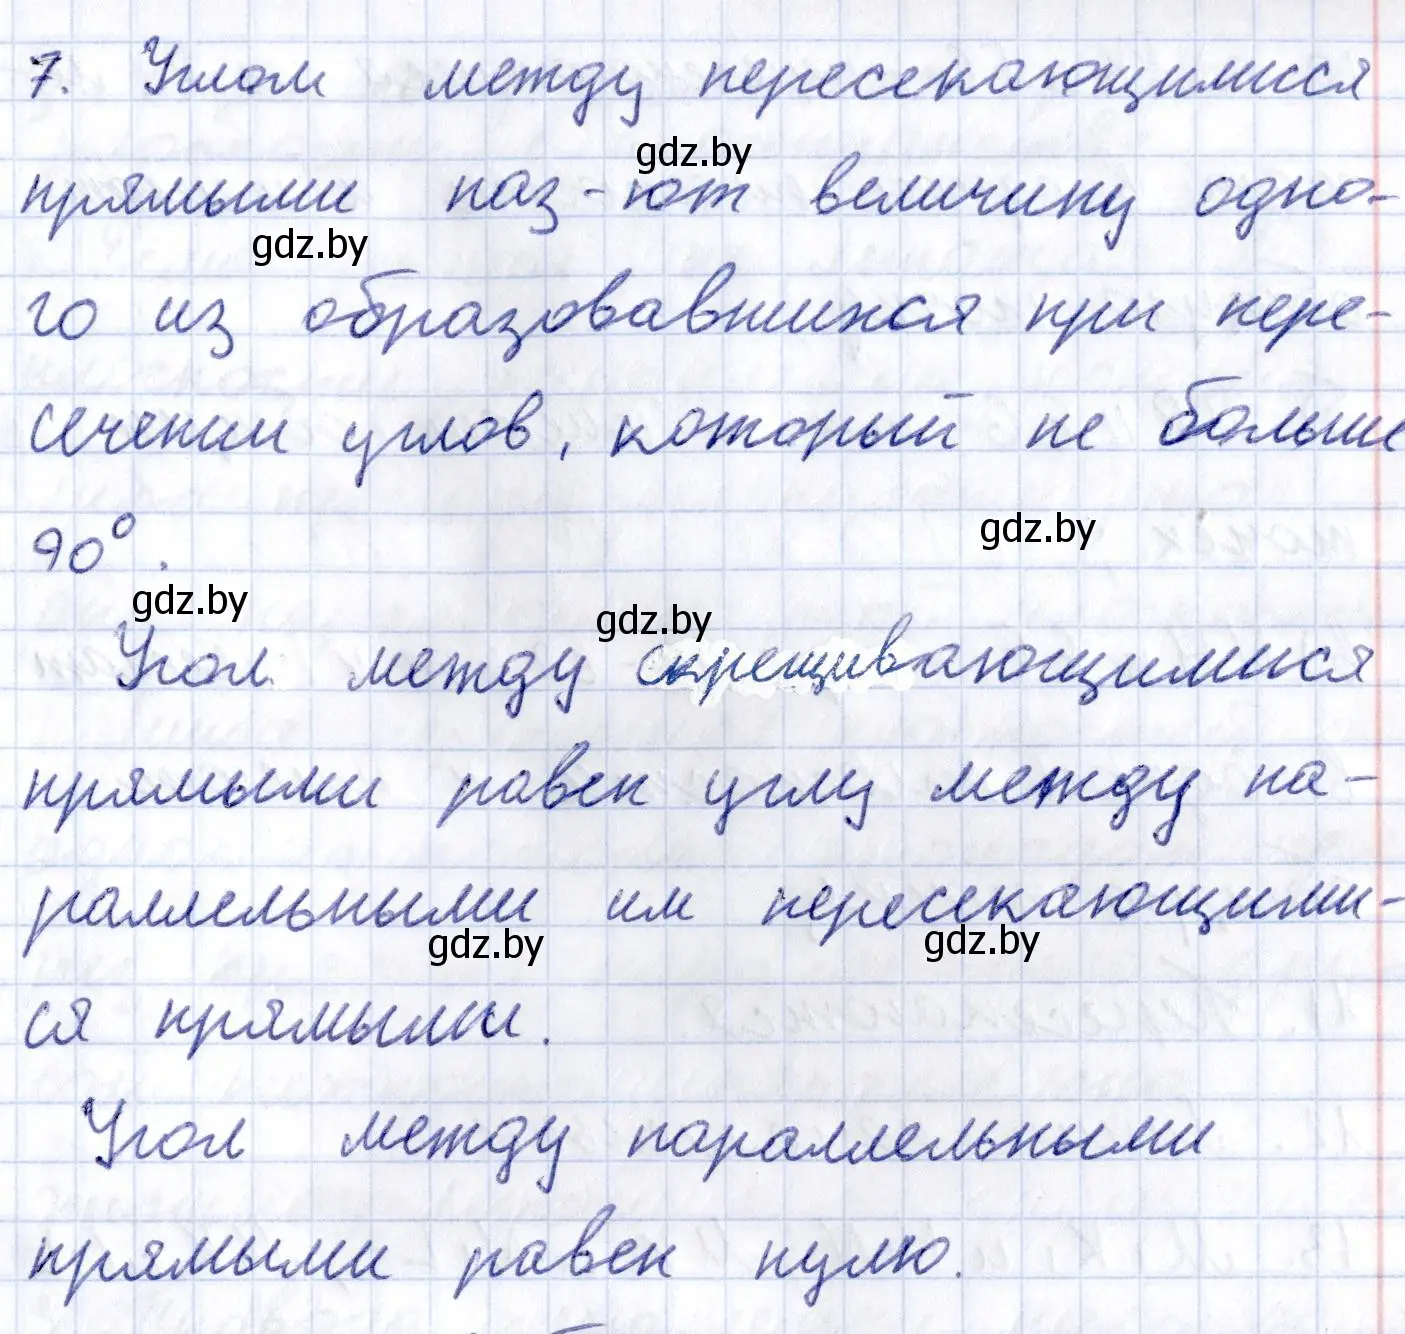 7. Углом между пересекающимися
gdz.by
прямыми наз-ют величину одно-
gdz.by
го из образовавшихся при пере-
сечении углов, который не больше
gdz.by
90°.
gdz.by
gdz.by
Угол между скрещивающимися
прямыми равен углу между па-
раллельными им пересекающими-
gdz.by
gdz.by
ся прямыми.
Угол между параллельными
прямыми равен нулю.